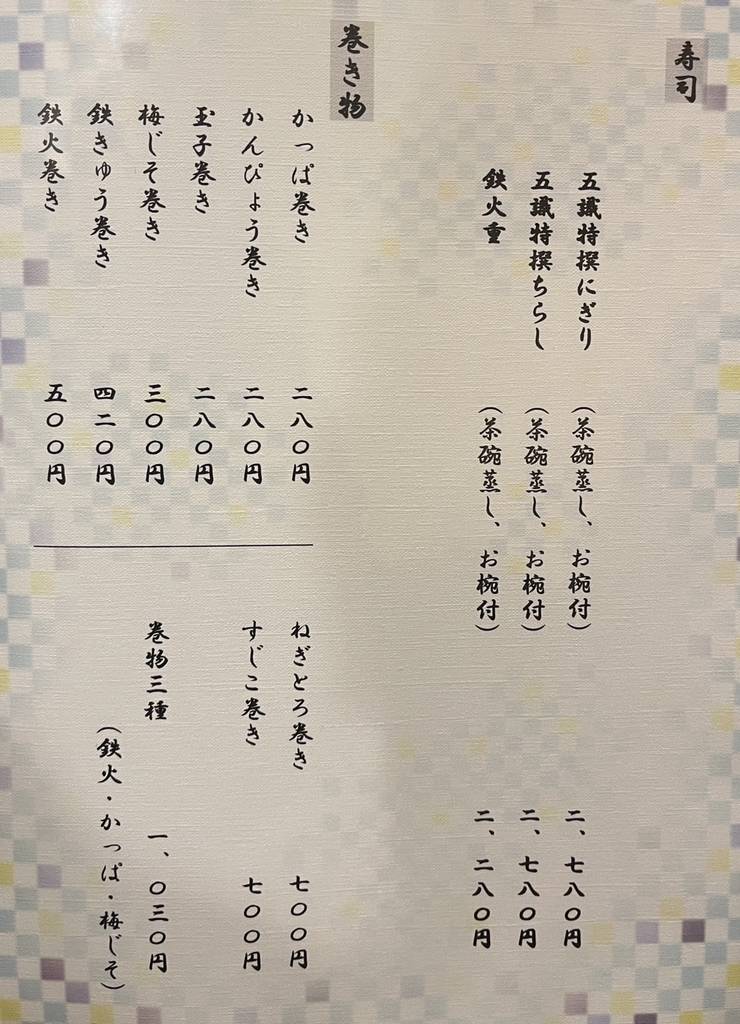 寿司
五識特撰にぎり （茶碗蒸し、お椀付） 二、七八〇円
五識特撰ちらし （茶碗蒸し、お椀付） 二、七八〇円
鉄火重 （茶碗蒸し、お椀付） 二、二八〇円
巻き物
かっぱ巻き 二八〇円
かんぴょう巻き 二八〇円
玉子巻き 二八〇円
梅じそ巻き 三〇〇円
鉄きゅう巻き 四二〇円
鉄火巻き 五〇〇円
ねぎとろ巻き 七〇〇円
すじこ巻き 七〇〇円
巻物三種 一、〇三〇円
（鉄火・かっぱ・梅じそ）